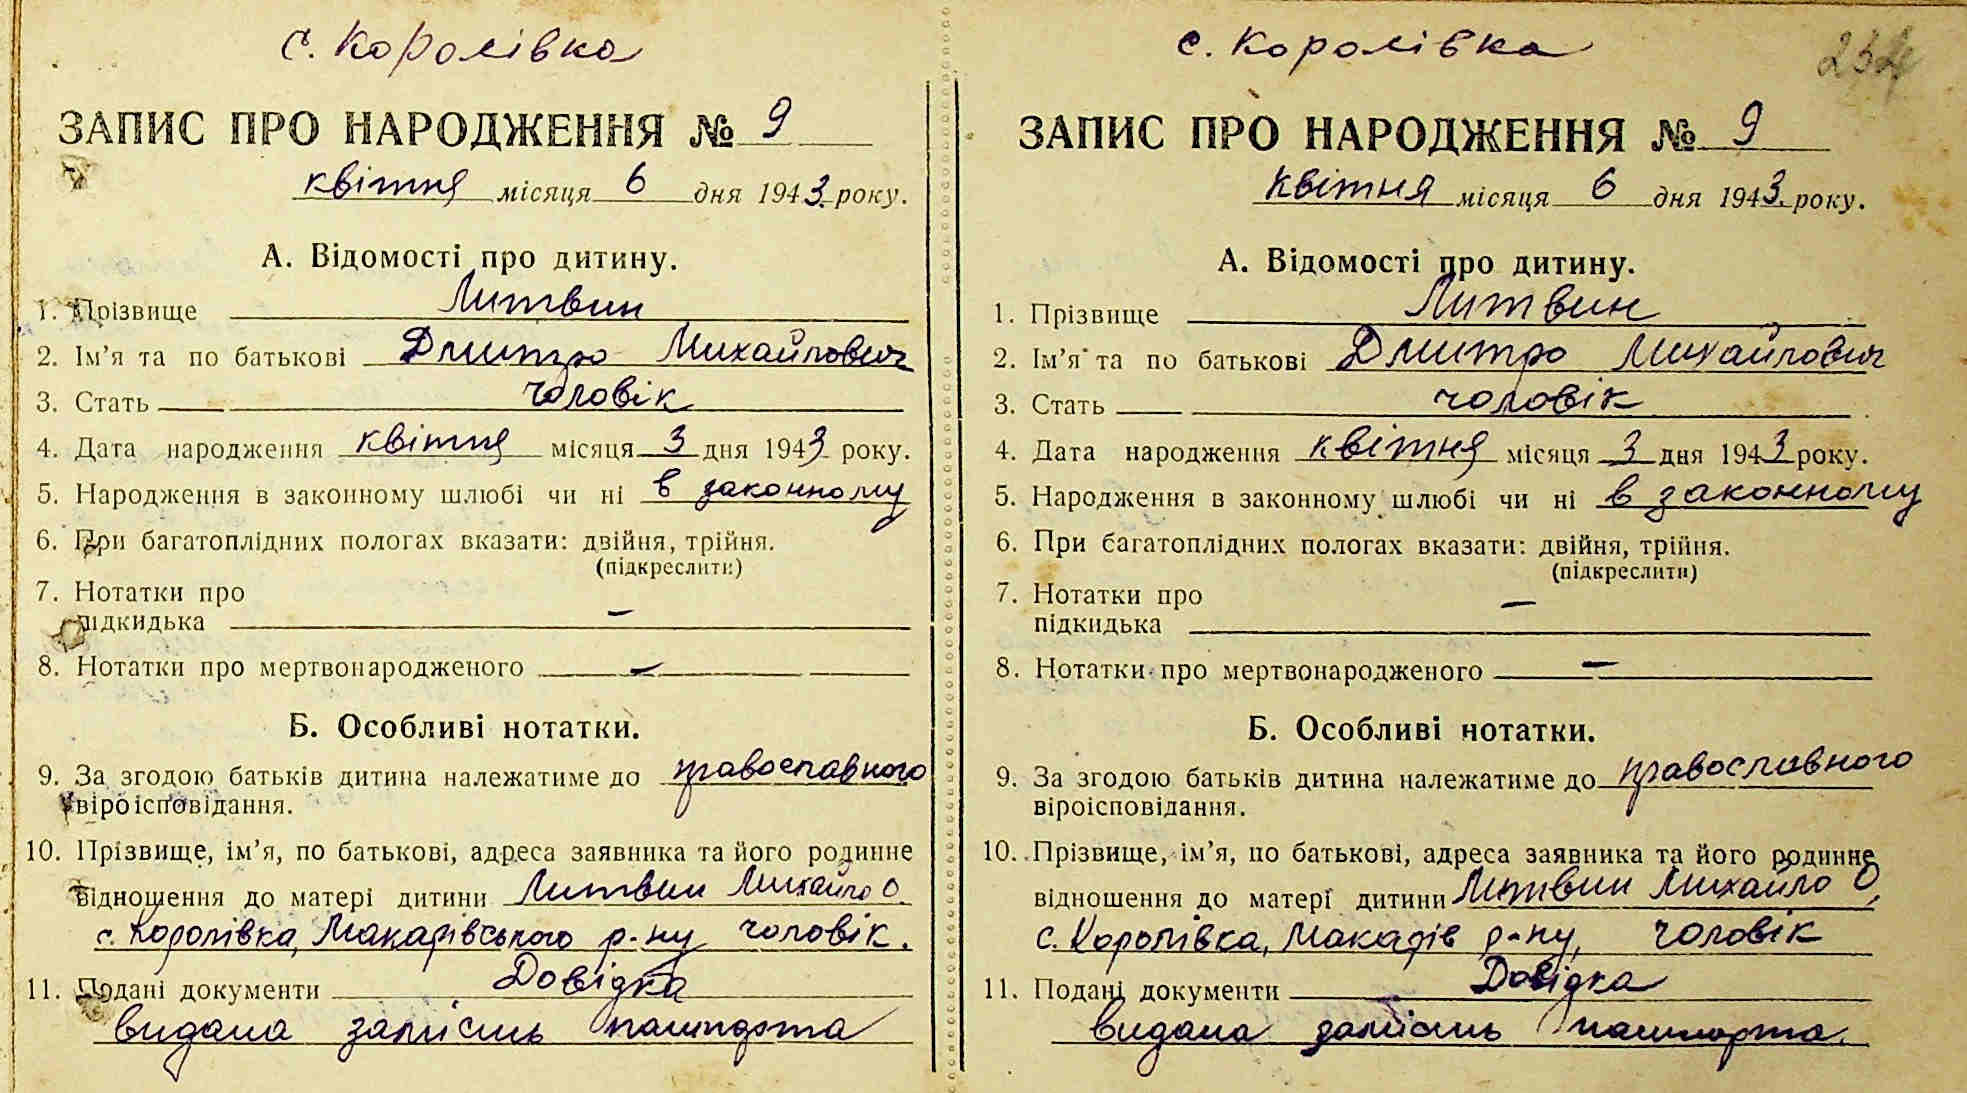 с. Королівка
ЗАПИС ПРО НАРОДЖЕННЯ № 9
квітня місяця 6 дня 1943 року.
А. Відомості про дитину.
1. Прізвище Литвин
2. Ім'я та по батькові Дмитро Михайлович
3. Стать чоловік
4. Дата народження квітня місяця 3 дня 1943 року.
5. Народження в законному шлюбі чи ні в законному
6. При багатоплідних пологах вказати: двійня, трійня.
(підкреслити)
7. Нотатки про
підкидька –
8. Нотатки про мертвонародженого –
Б. Особливі нотатки.
9. За згодою батьків дитина належатиме до православного
віроісповідання.
10. Прізвище, ім'я, по батькові, адреса заявника та його родинне
відношення до матері дитини Литвин Михайло О.
с. Королівка, Макарівського р-ну чоловік.
11. Подані документи Довідка
видана замісць пашпорта
с. Королівка
234
ЗАПИС ПРО НАРОДЖЕННЯ № 9
квітня місяця 6 дня 1943 року.
А. Відомості про дитину.
1. Прізвище Литвин
2. Ім'я та по батькові Дмитро Михайлович
3. Стать чоловік
4. Дата народження квітня місяця 3 дня 1943 року.
5. Народження в законному шлюбі чи ні в законному
6. При багатоплідних пологах вказати: двійня, трійня.
(підкреслити)
7. Нотатки про
підкидька –
8. Нотатки про мертвонародженого –
Б. Особливі нотатки.
9. За згодою батьків дитина належатиме до православного
віроісповідання.
10. Прізвище, ім'я, по батькові, адреса заявника та його родинне
відношення до матері дитини Литвин Михайло О,
с. Королівка, Макарів р-ну, чоловік
11. Подані документи Довідка
видана замісць пашпорта.